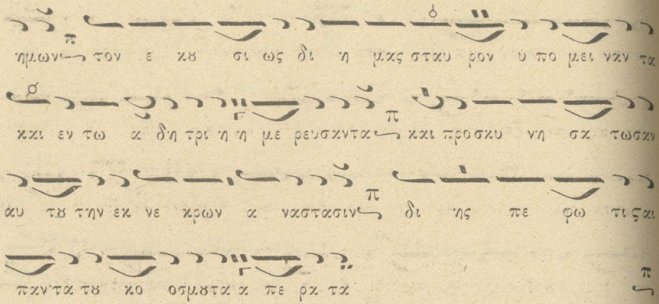 ημων π τον ε κȣ σι ως δι η μας σταυ ρον υ πο μει ναν τα
και εν τω α δη τρι η η με ρευσαντα π και προσκυ νη σα τωσαν
αυ τȣ την εκ νε κρων α ναστασιν π δι ης πε φω τι ϛαι
παν τα τȣ κο οσμȣ τα α πε ρα τα π